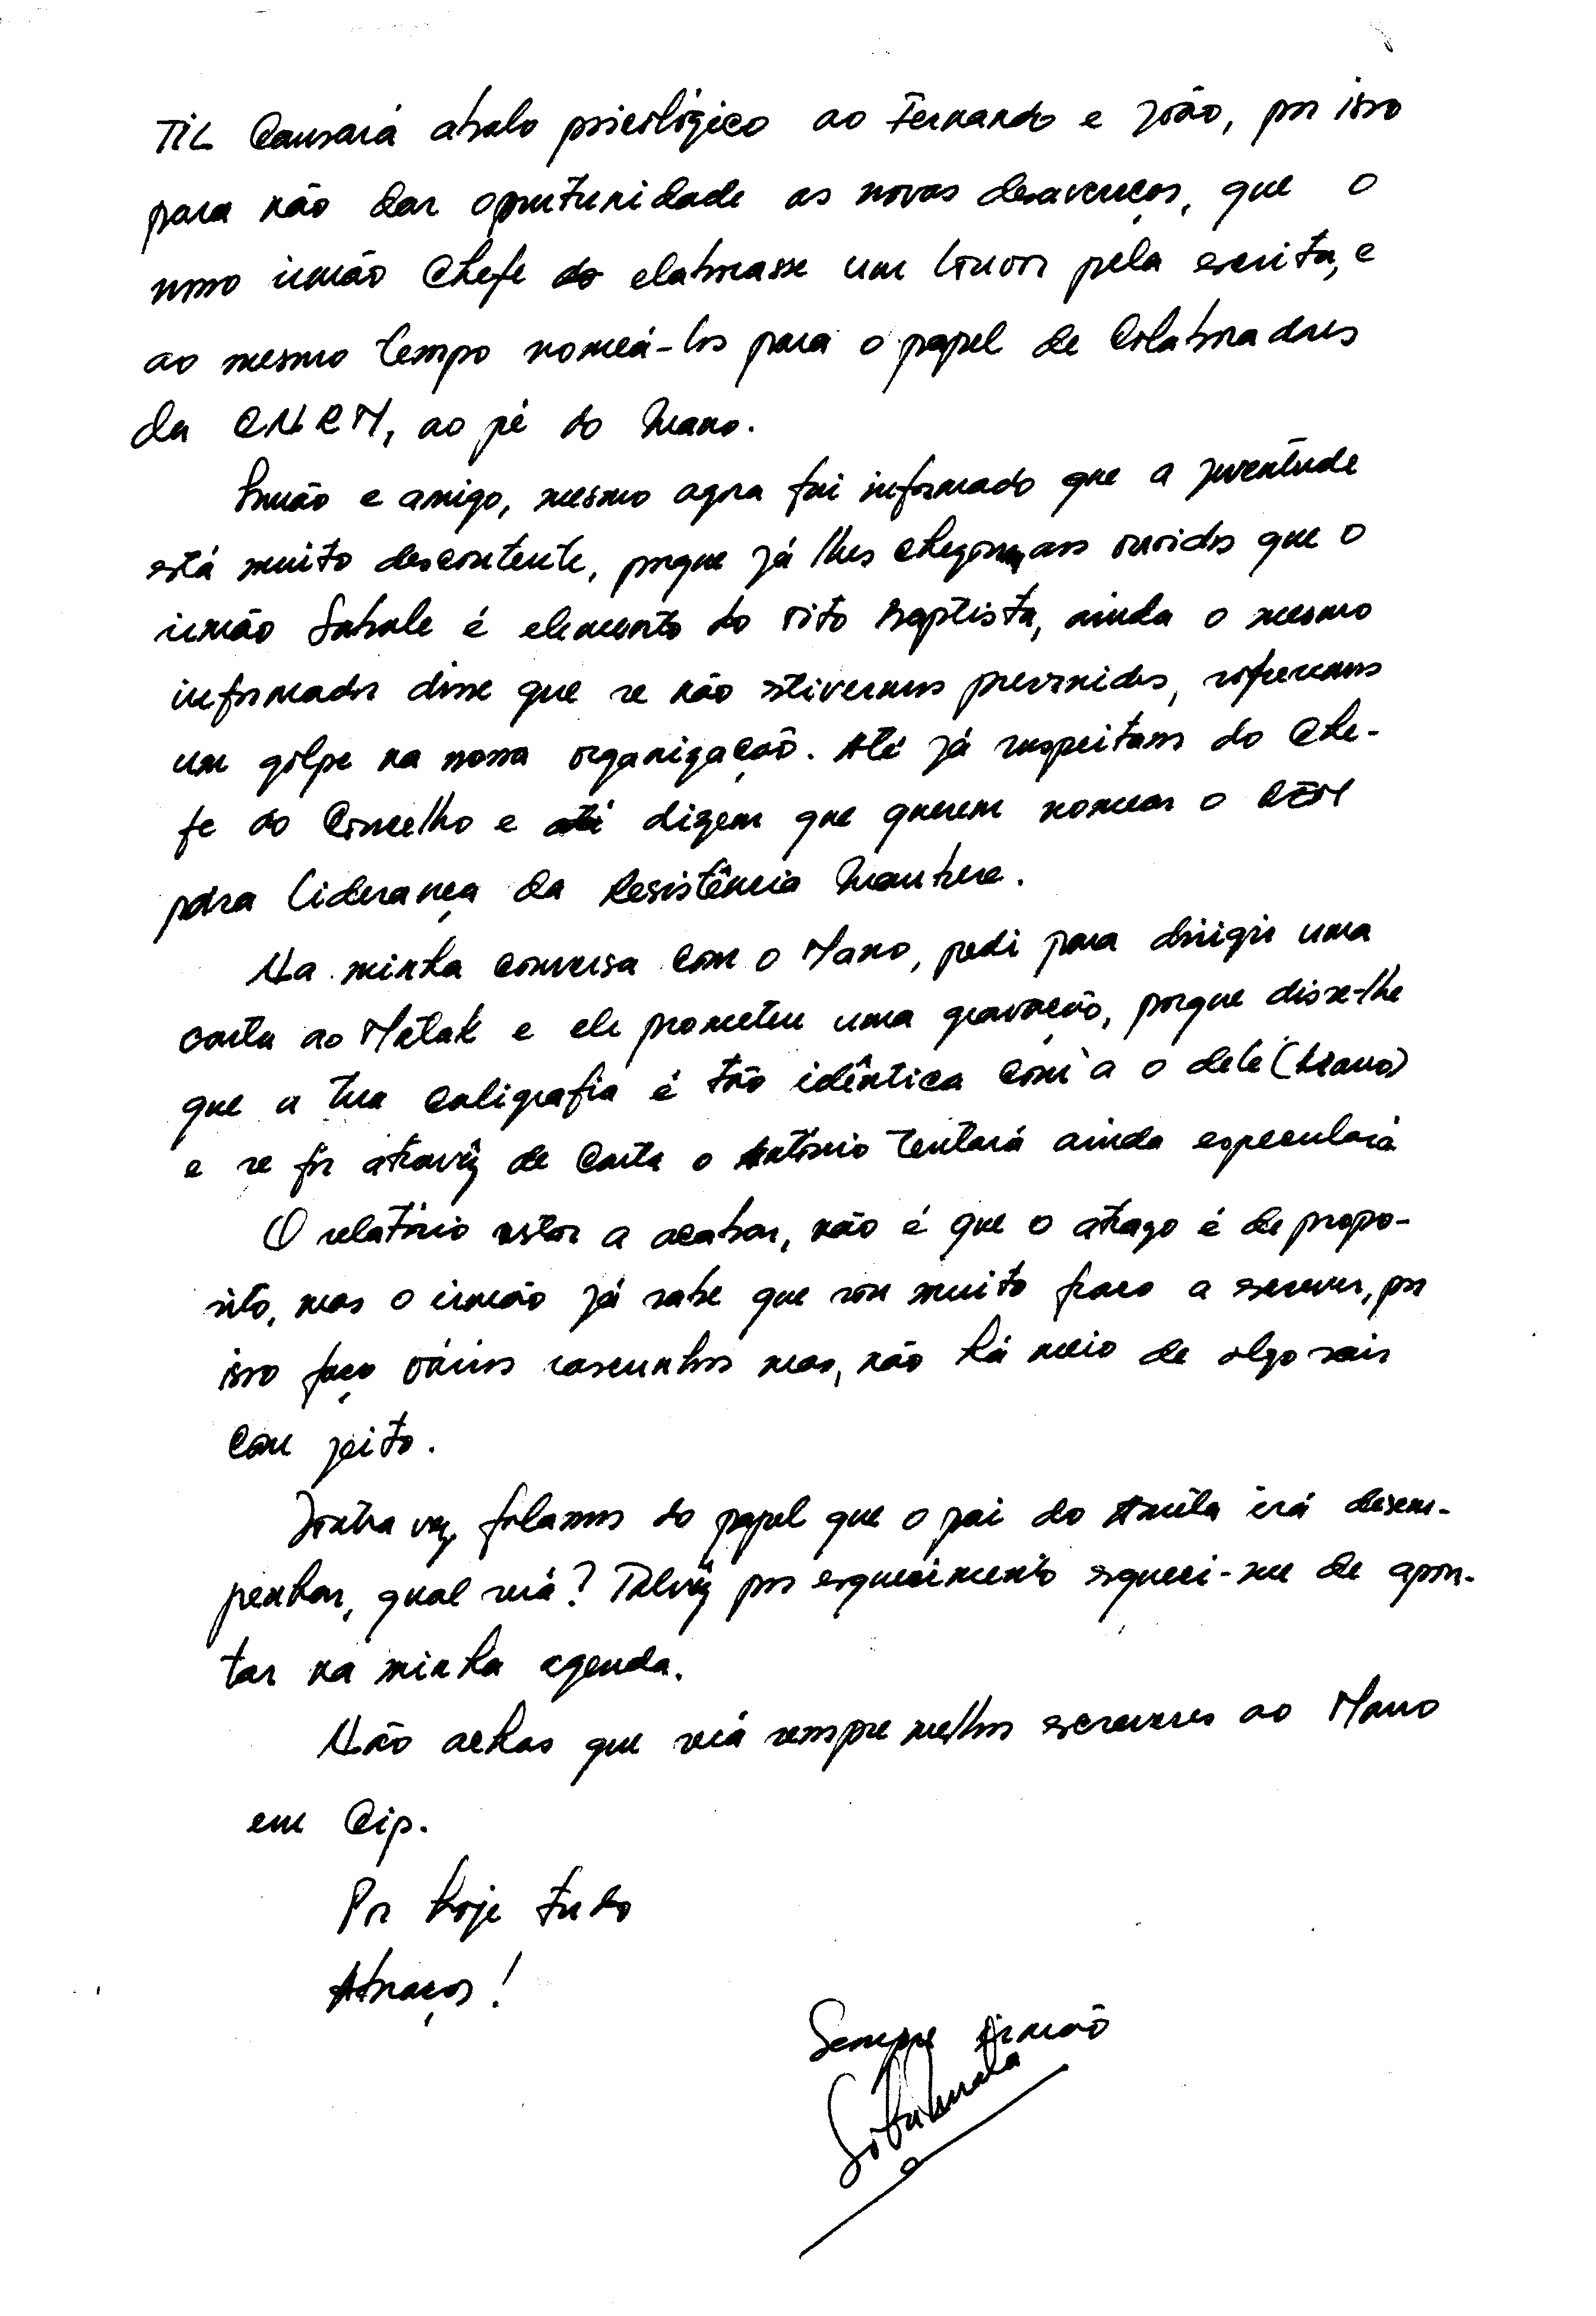 TIL Causará abalo psicológico ao Fernando e João, por isso
para não dar oportunidade as novas desavenças, que o
nosso irmão Chefe elaborasse um louvor pela escrita, e
ao mesmo tempo nomeá-los para o papel de Colaboradores
da CNRM, ao pé do Mano.
Irmão e amigo, mesmo agora fui informado que a juventude
está muito descontente, porque já lhes chegou aos ouvidos que o
irmão Sabale é elemento do tito Baptista, ainda o mesmo
informador disse que se não estivermos prevenidos, sofreremos
um golpe na nossa organização. Até já suspeitam do Che-
fe do Concelho e dizem que querem nomear o
para liderança da Resistência Maubere.
Na minha conversa com o Mano, pedi para dirigir uma
carta ao Metak e ele prometeu uma gravação, porque disse-lhe
que a tua caligrafia é tão idêntica com a o dele (Mano)
e se for através de carta o António tentará ainda especulará
O relatório estou a acabar, não é que o atrazo é de propo-
sito, mas o irmão já sabe que sou muito fraco a escrever, por
isso faço vários rascunhos mas, não há meio de algo sair
com jeito.
Doutra vez, falamos do papel que o pai do irá desem-
penhar, qual será? Talvez por esquecimento esqueci-me de apon-
tar na minha agenda.
Não achas que será sempre melhor escreveres ao Mano
em Cip.
Por hoje tudo
Abraços!
Sempre irmão